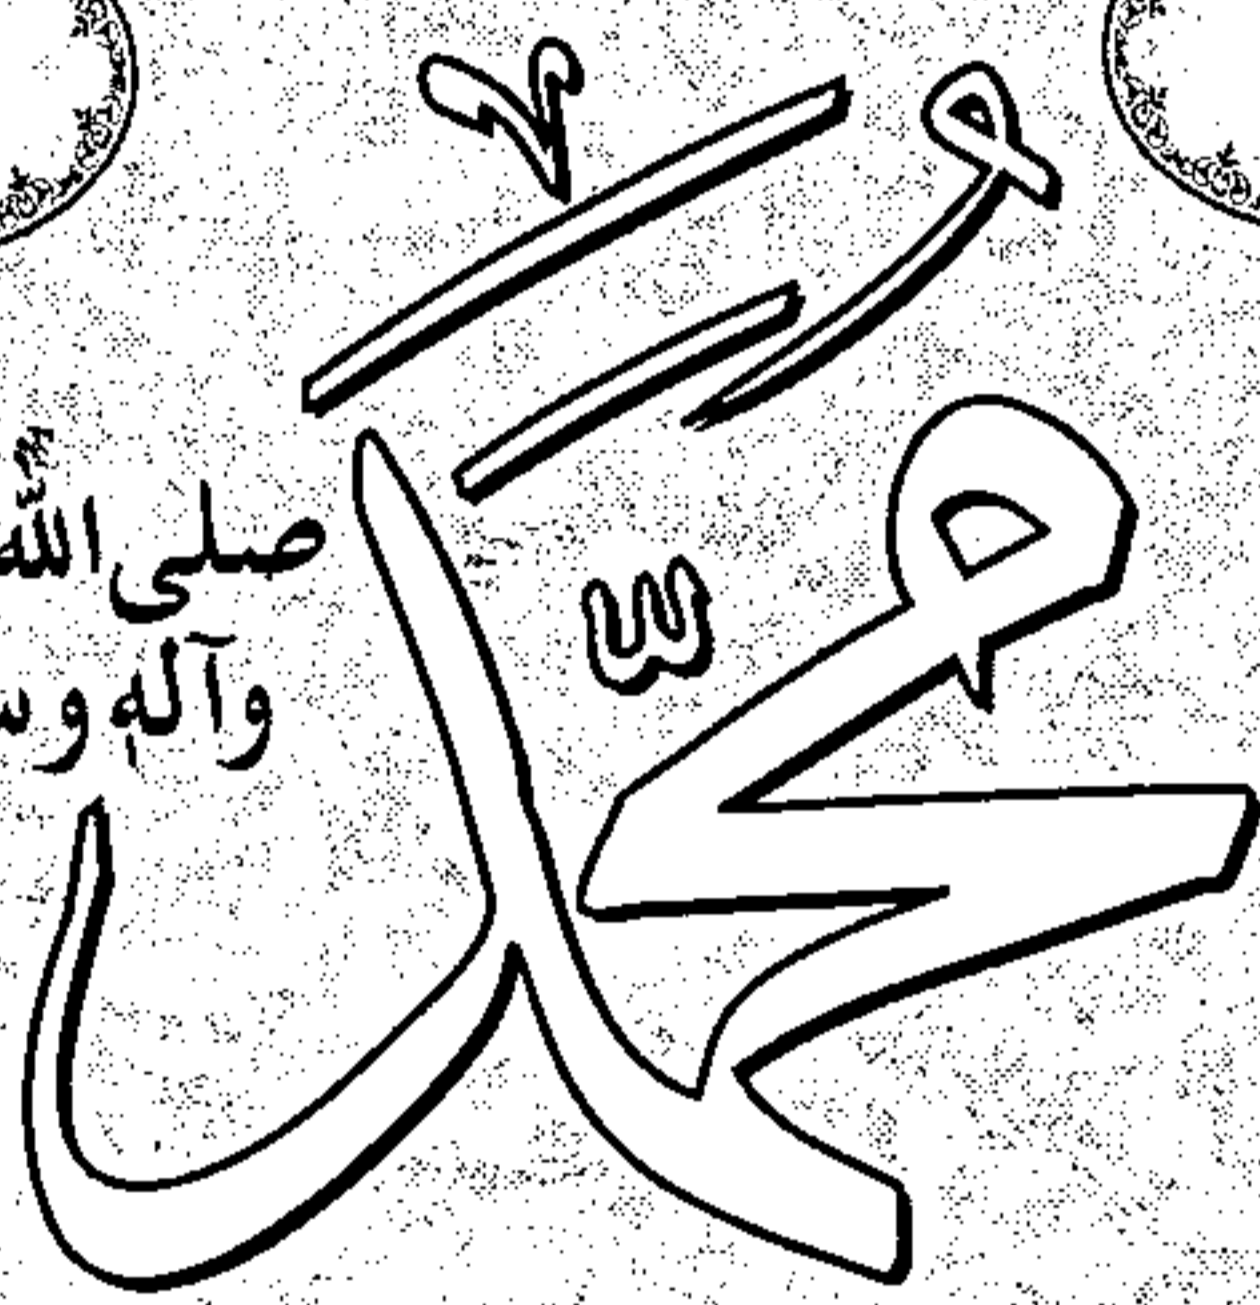 مُحَمَّد
صلى اللّٰه
وآلهٖ وس